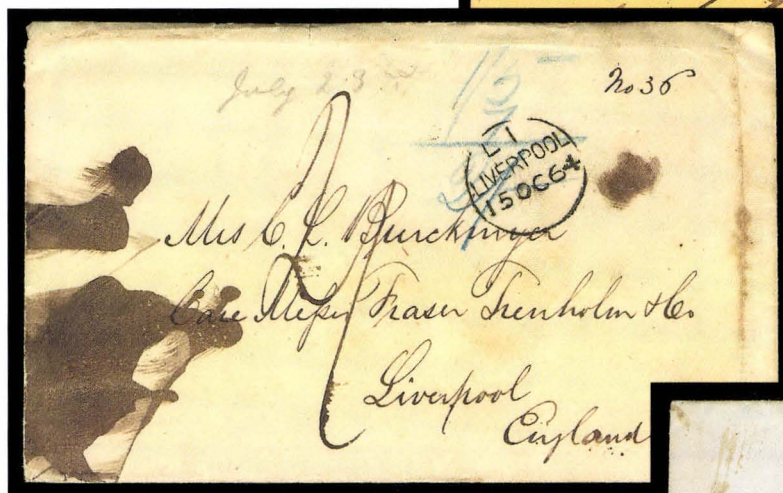 July 23rd
No 36
1/5
L 1
LIVERPOOL
15 OC 64
2/
Mrs C. L. Burckmyer
Care Messrs Fraser Trenholm & Co
Liverpool
England